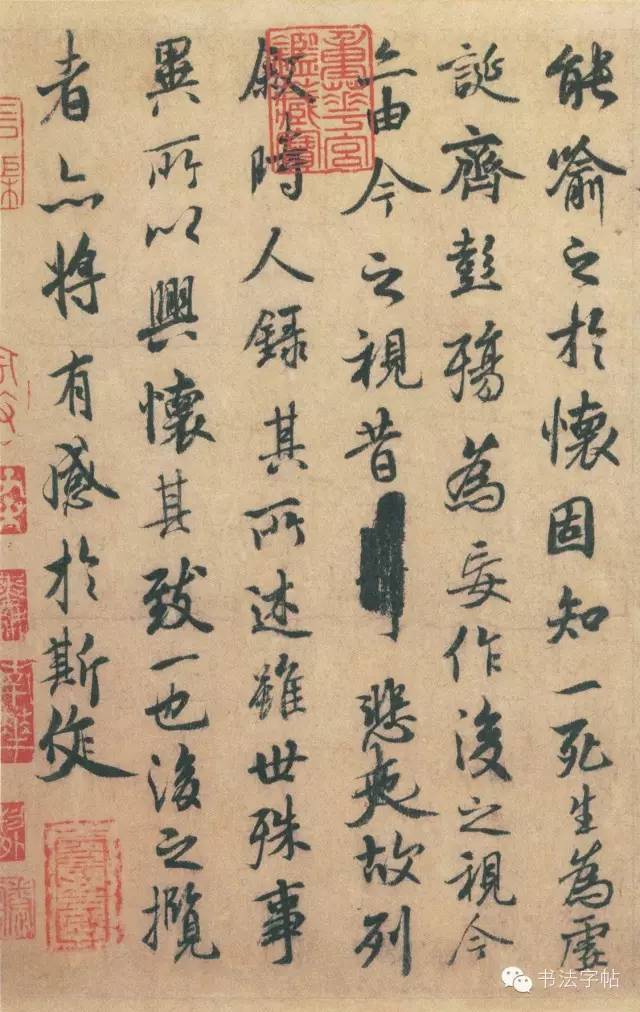 能喻之於懷固知一死生為虛
誕齊彭殤為妄作後之視今
亦由今之視昔悲夫故列
敘時人錄其所述雖世殊事
異所以興懷其致一也後之攬
者亦將有感於斯文
重華宮鑑藏寶
书法字帖